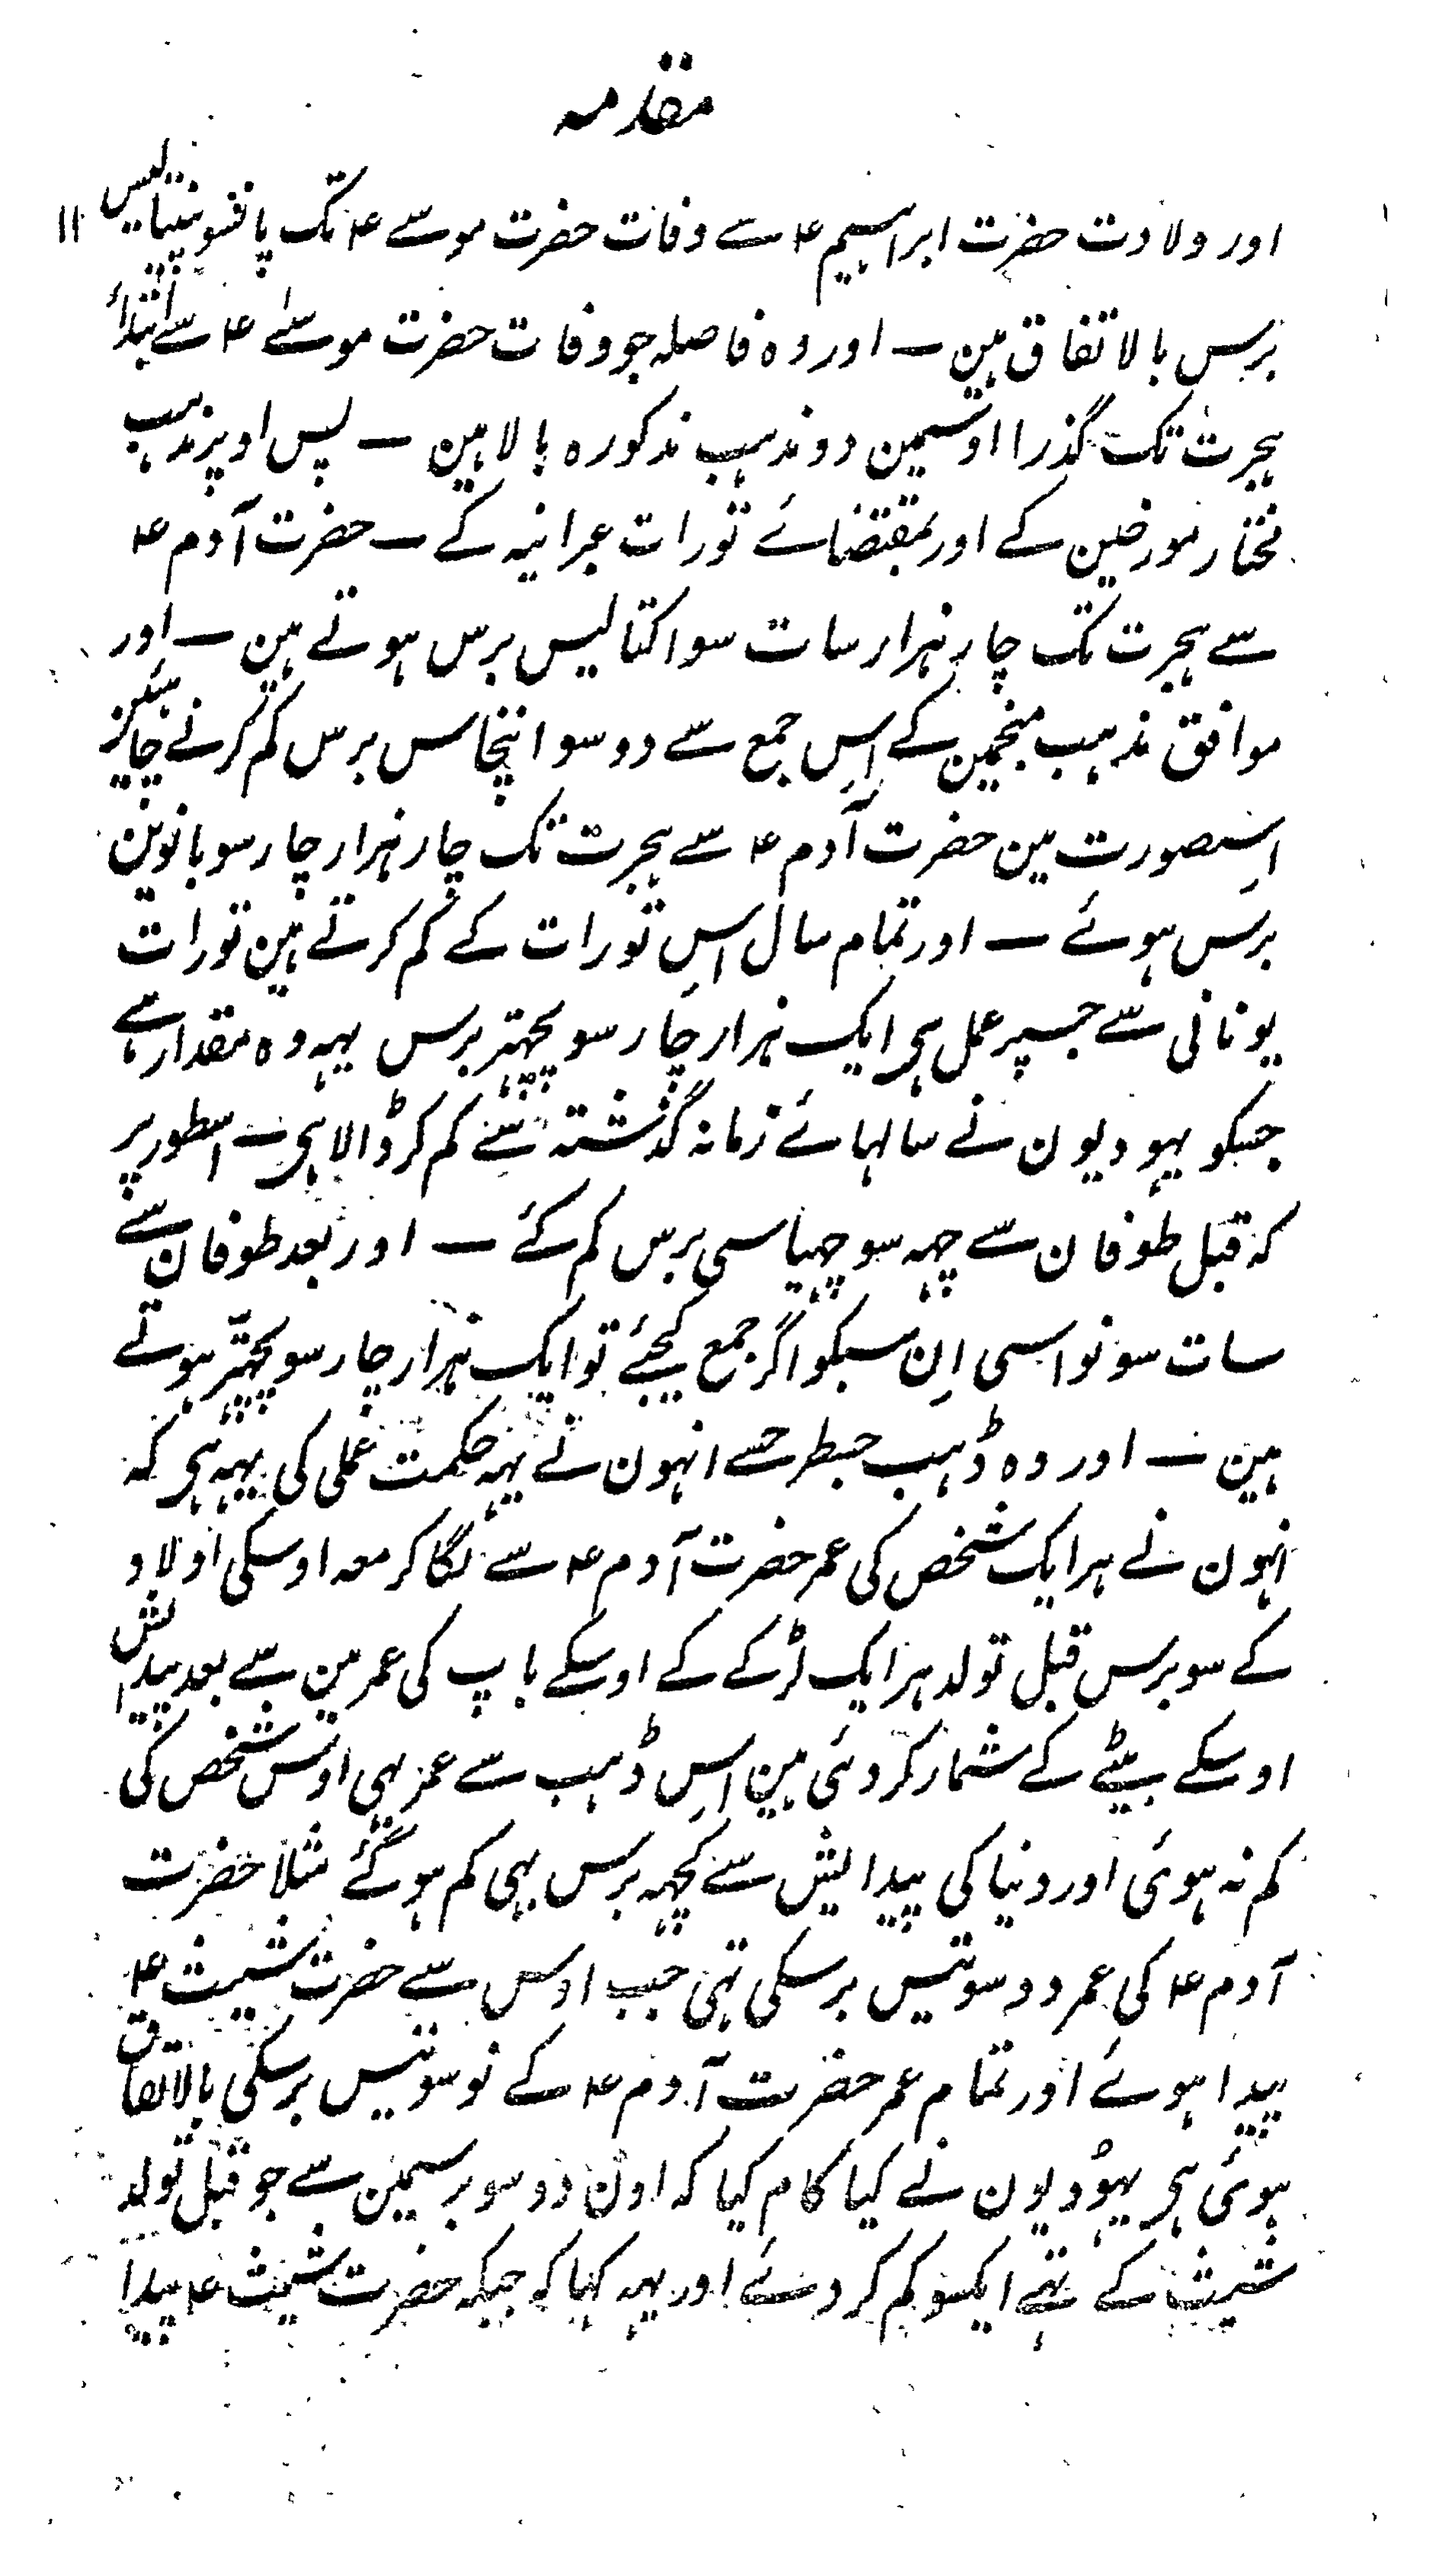 مقدمہ
اور ولادت حضرت ابراہیم ۴ سے وفات حضرت موسے ۴ تک پانسو پینتالیس ۱۱
برس بالاتفاق ہین — اور وہ فاصلہ جو وفات حضرت موسےٰ ۴ سے ابتدائے
ہجرت تک گذرا اوسمین دو مذہب مذکورہ بالا ہین — پس اوپر مذہب
مختار مورخین کے اور بمقتضائے تورات عبرانیہ کے — حضرت آدم ۴
سے ہجرت تک چار ہزار سات سو اکتالیس برس ہوتے ہین — اور
موافق مذہب منجمین کے اِس جمع سے دو سو انچاس برس کم کرنے چاہئین
اِسصورت مین حضرت آدم ۴ سے ہجرت تک چار ہزار چار سو بانوین
برس ہوئے — اور تمام سال اِس تورات کے کم کرتے ہین تورات
یونانی سے جسپر عمل ہی ایک ہزار چار سو پچہتر برس یہہ وہ مقدار ہے
جسکو یہودیون نے سالہائے زمانہ گذشتہ سے کم کر ڈالا ہی — اسطور پر
کہ قبل طوفان سے چہہ سو چہیاسی برس کم کئے — اور بعد طوفان سے
سات سو نواسی اِن سبکو اگر جمع کیجئے تو ایک ہزار چار سو پچہتر ہوتے
ہین — اور وہ ڈہب جسطرحسے انہون نے یہہ حکمت عملی کی یہہ ہی کہ
انہون نے ہر ایک شخص کی عمر حضرت آدم ۴ سے لگا کر معہ اوسکی اولاد
کے سو برس قبل تولد ہر ایک لڑکے کے اوسکے باپ کی عمر مین سے بعد پیدایش
اوسکے بیٹے کے شمار کر دئی ہین اِس ڈہب سے عمر بہی اوس شخص کی
کم نہ ہوئی اور دنیا کی پیدایش سے کچہہ برس بہی کم ہو گئے مثلاً حضرت
آدم ۴ کی عمر دو سو تیس برسکی تہی جب اوس سے حضرت شیث ۴
پیدا ہوئے اور تمام عمر حضرت آدم ۴ کے نو سو تیس برسکی بالاتفاق
ہوئی ہی یہودیون نے کیا کام کیا کہ اون دو سو برسمین سے جو قبل تولد
شیث کے تہے ایکسو کم کر دئے اور یہہ کہا کہ جبکہ حضرت شیث ۴ پیدا